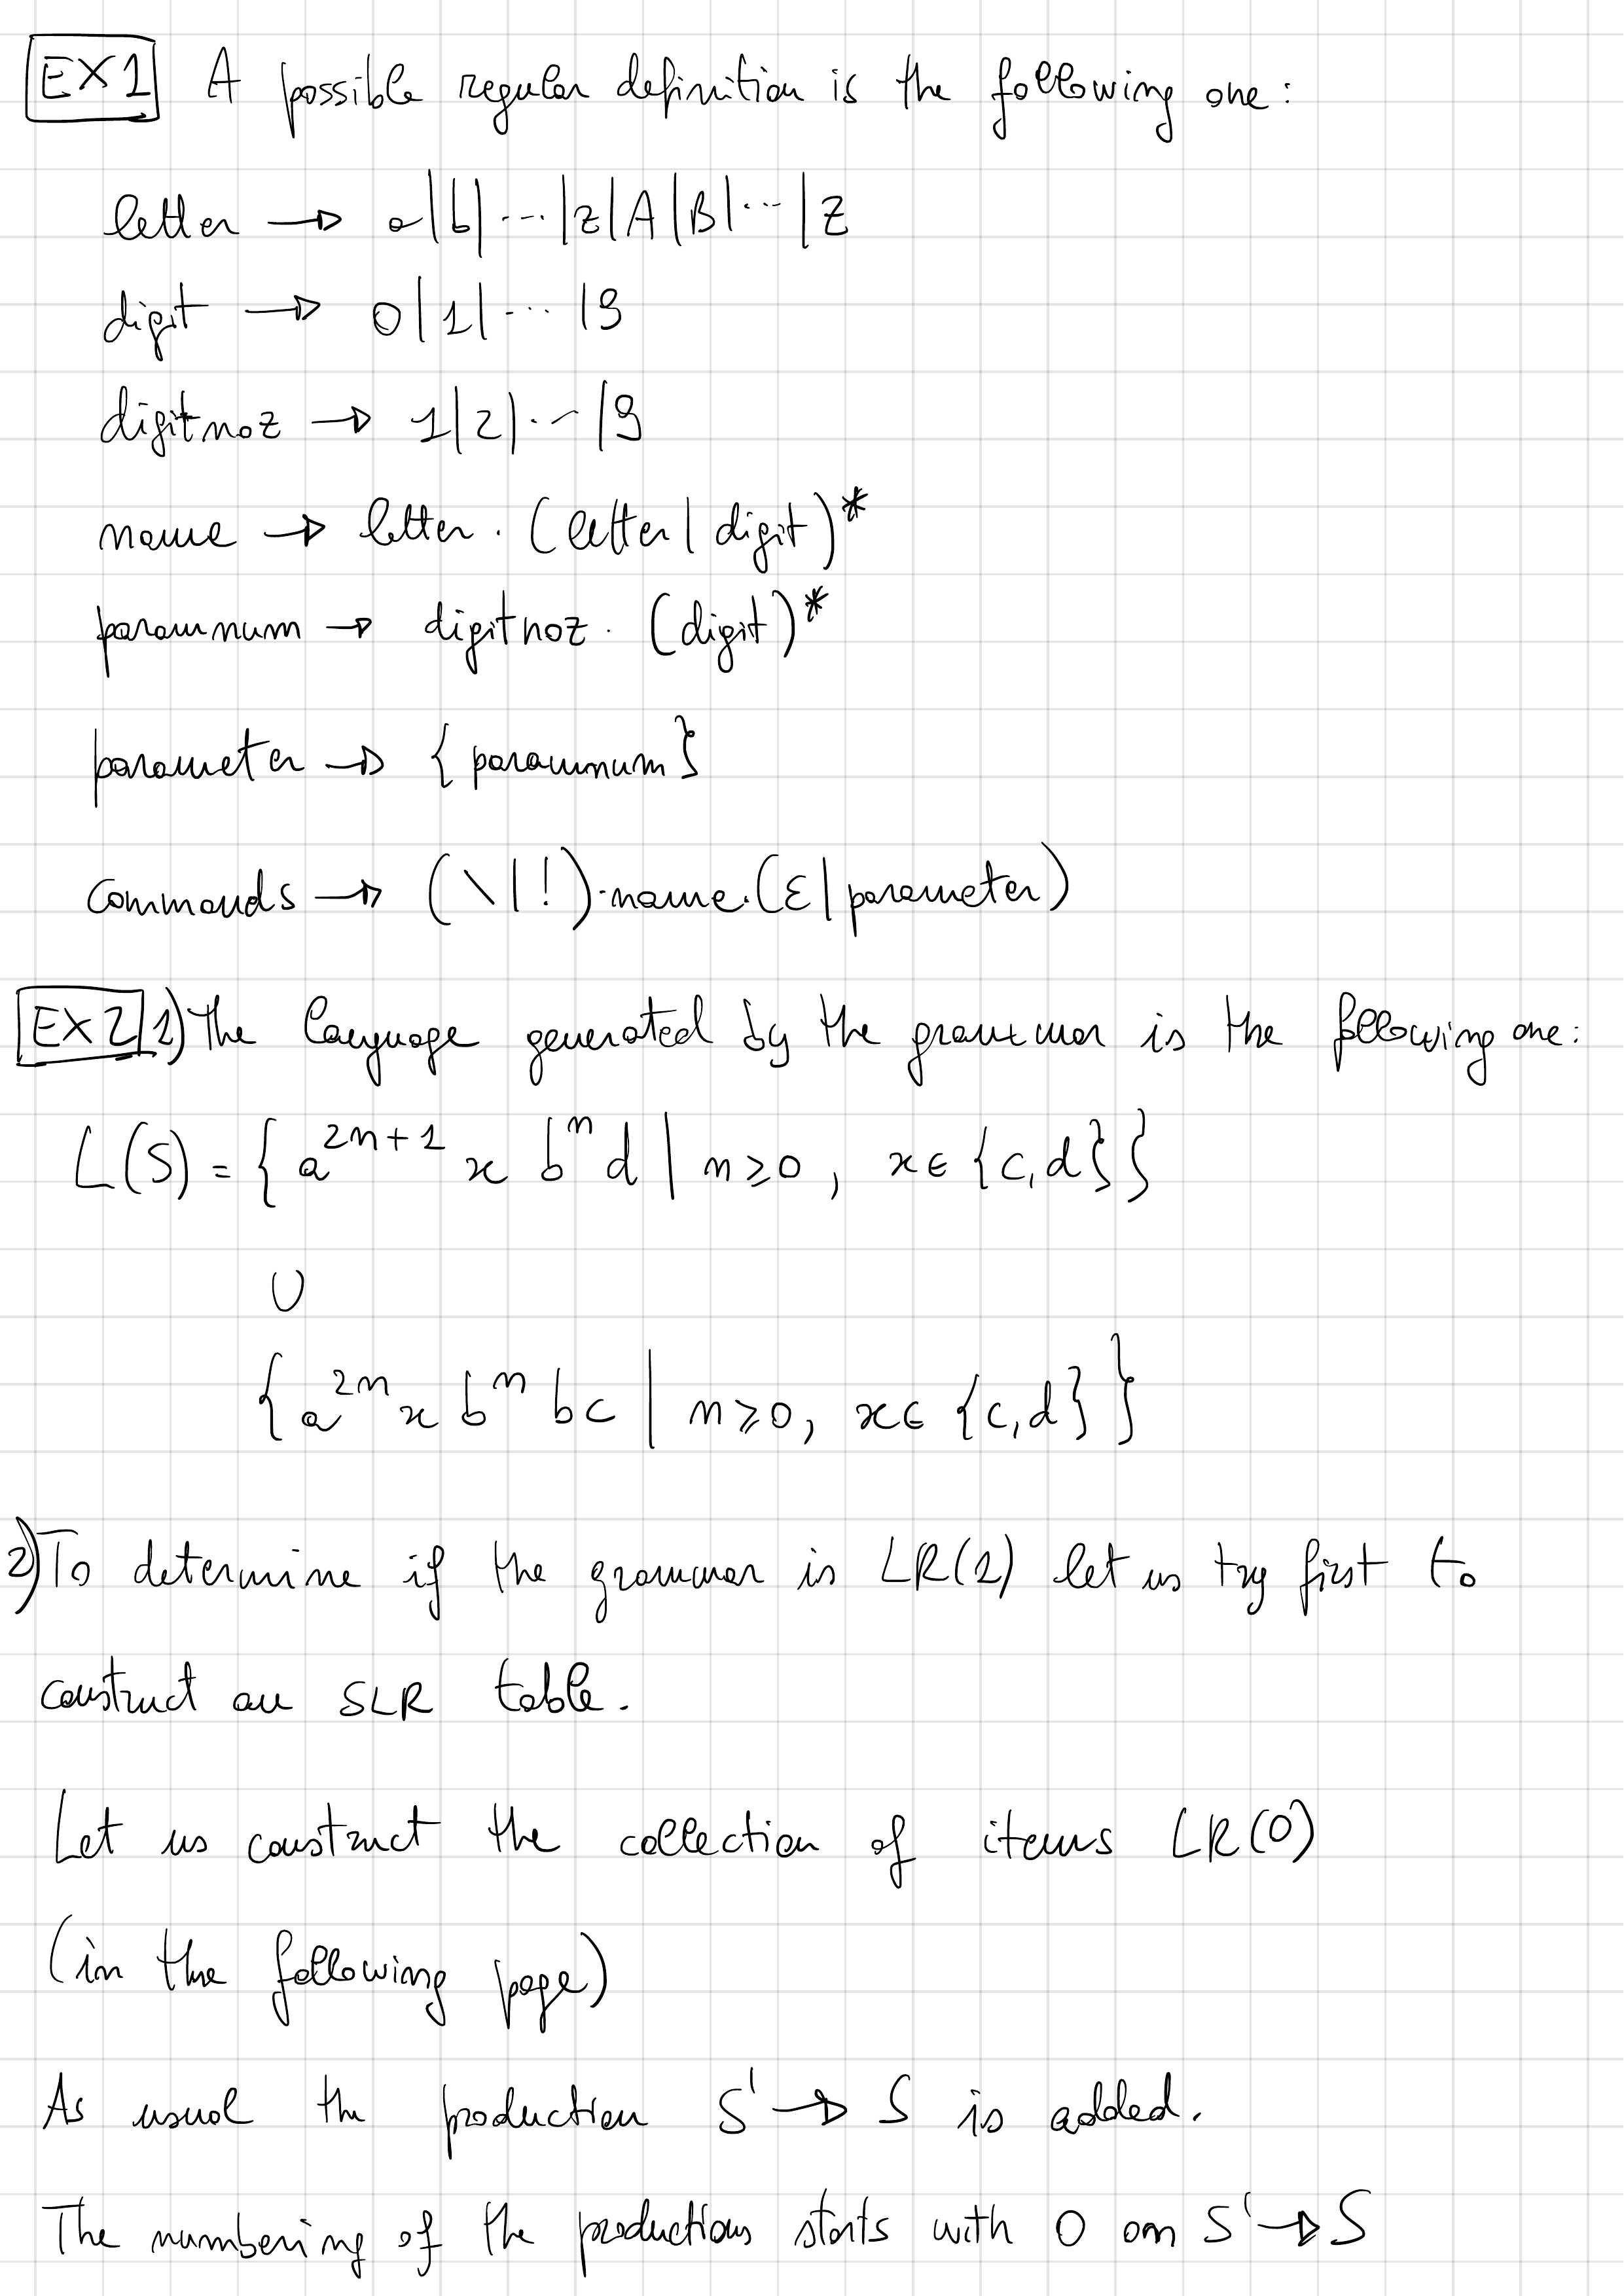 EX1 A possible regular definition is the following one:
letter → a|b|...|z|A|B|...|Z
digit → 0|1|...|9
digitnoz → 1|2|...|9
name → letter . (letter | digit)*
paramnum → digitnoz . (digit)*
parameter → { paramnum }
commands → (\|!).name.(ε|parameter)
EX2 1) The language generated by the grammar is the following one:
L(S) = { a^{2n+1} x b^n d | n ≥ 0, x ∈ {c,d} }
∪
{ a^{2n} x b^n bc | n ≥ 0, x ∈ {c,d} }
2) To determine if the grammar is LR(1) let us try first to
construct an SLR table.
Let us construct the collection of items LR(0)
(in the following page)
As usual the production S' → S is added.
The numbering of the productions starts with 0 on S' → S